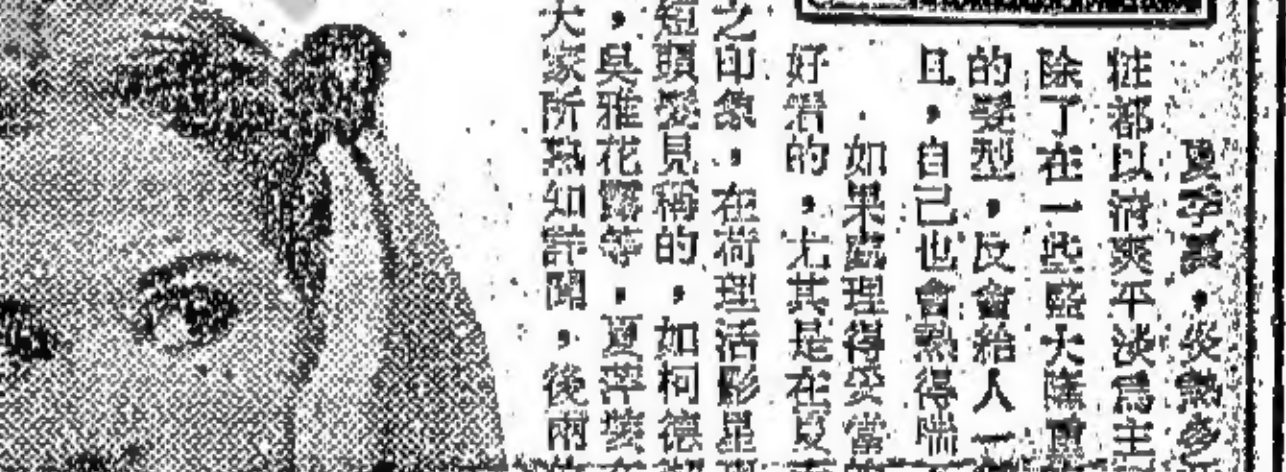 夏季裏，炎熱
粧都以清爽平淡爲主
除了在一些盛大隆重
的髮型，反會給人一
且，自己也會熱得喘
如果處理得妥當
好潛的，尤其是在夏
之印象，在荷理活影星
短頭髮見稱的，如柯德
，吳雅花露等，夏萍
大家所熟知詳聞，後兩